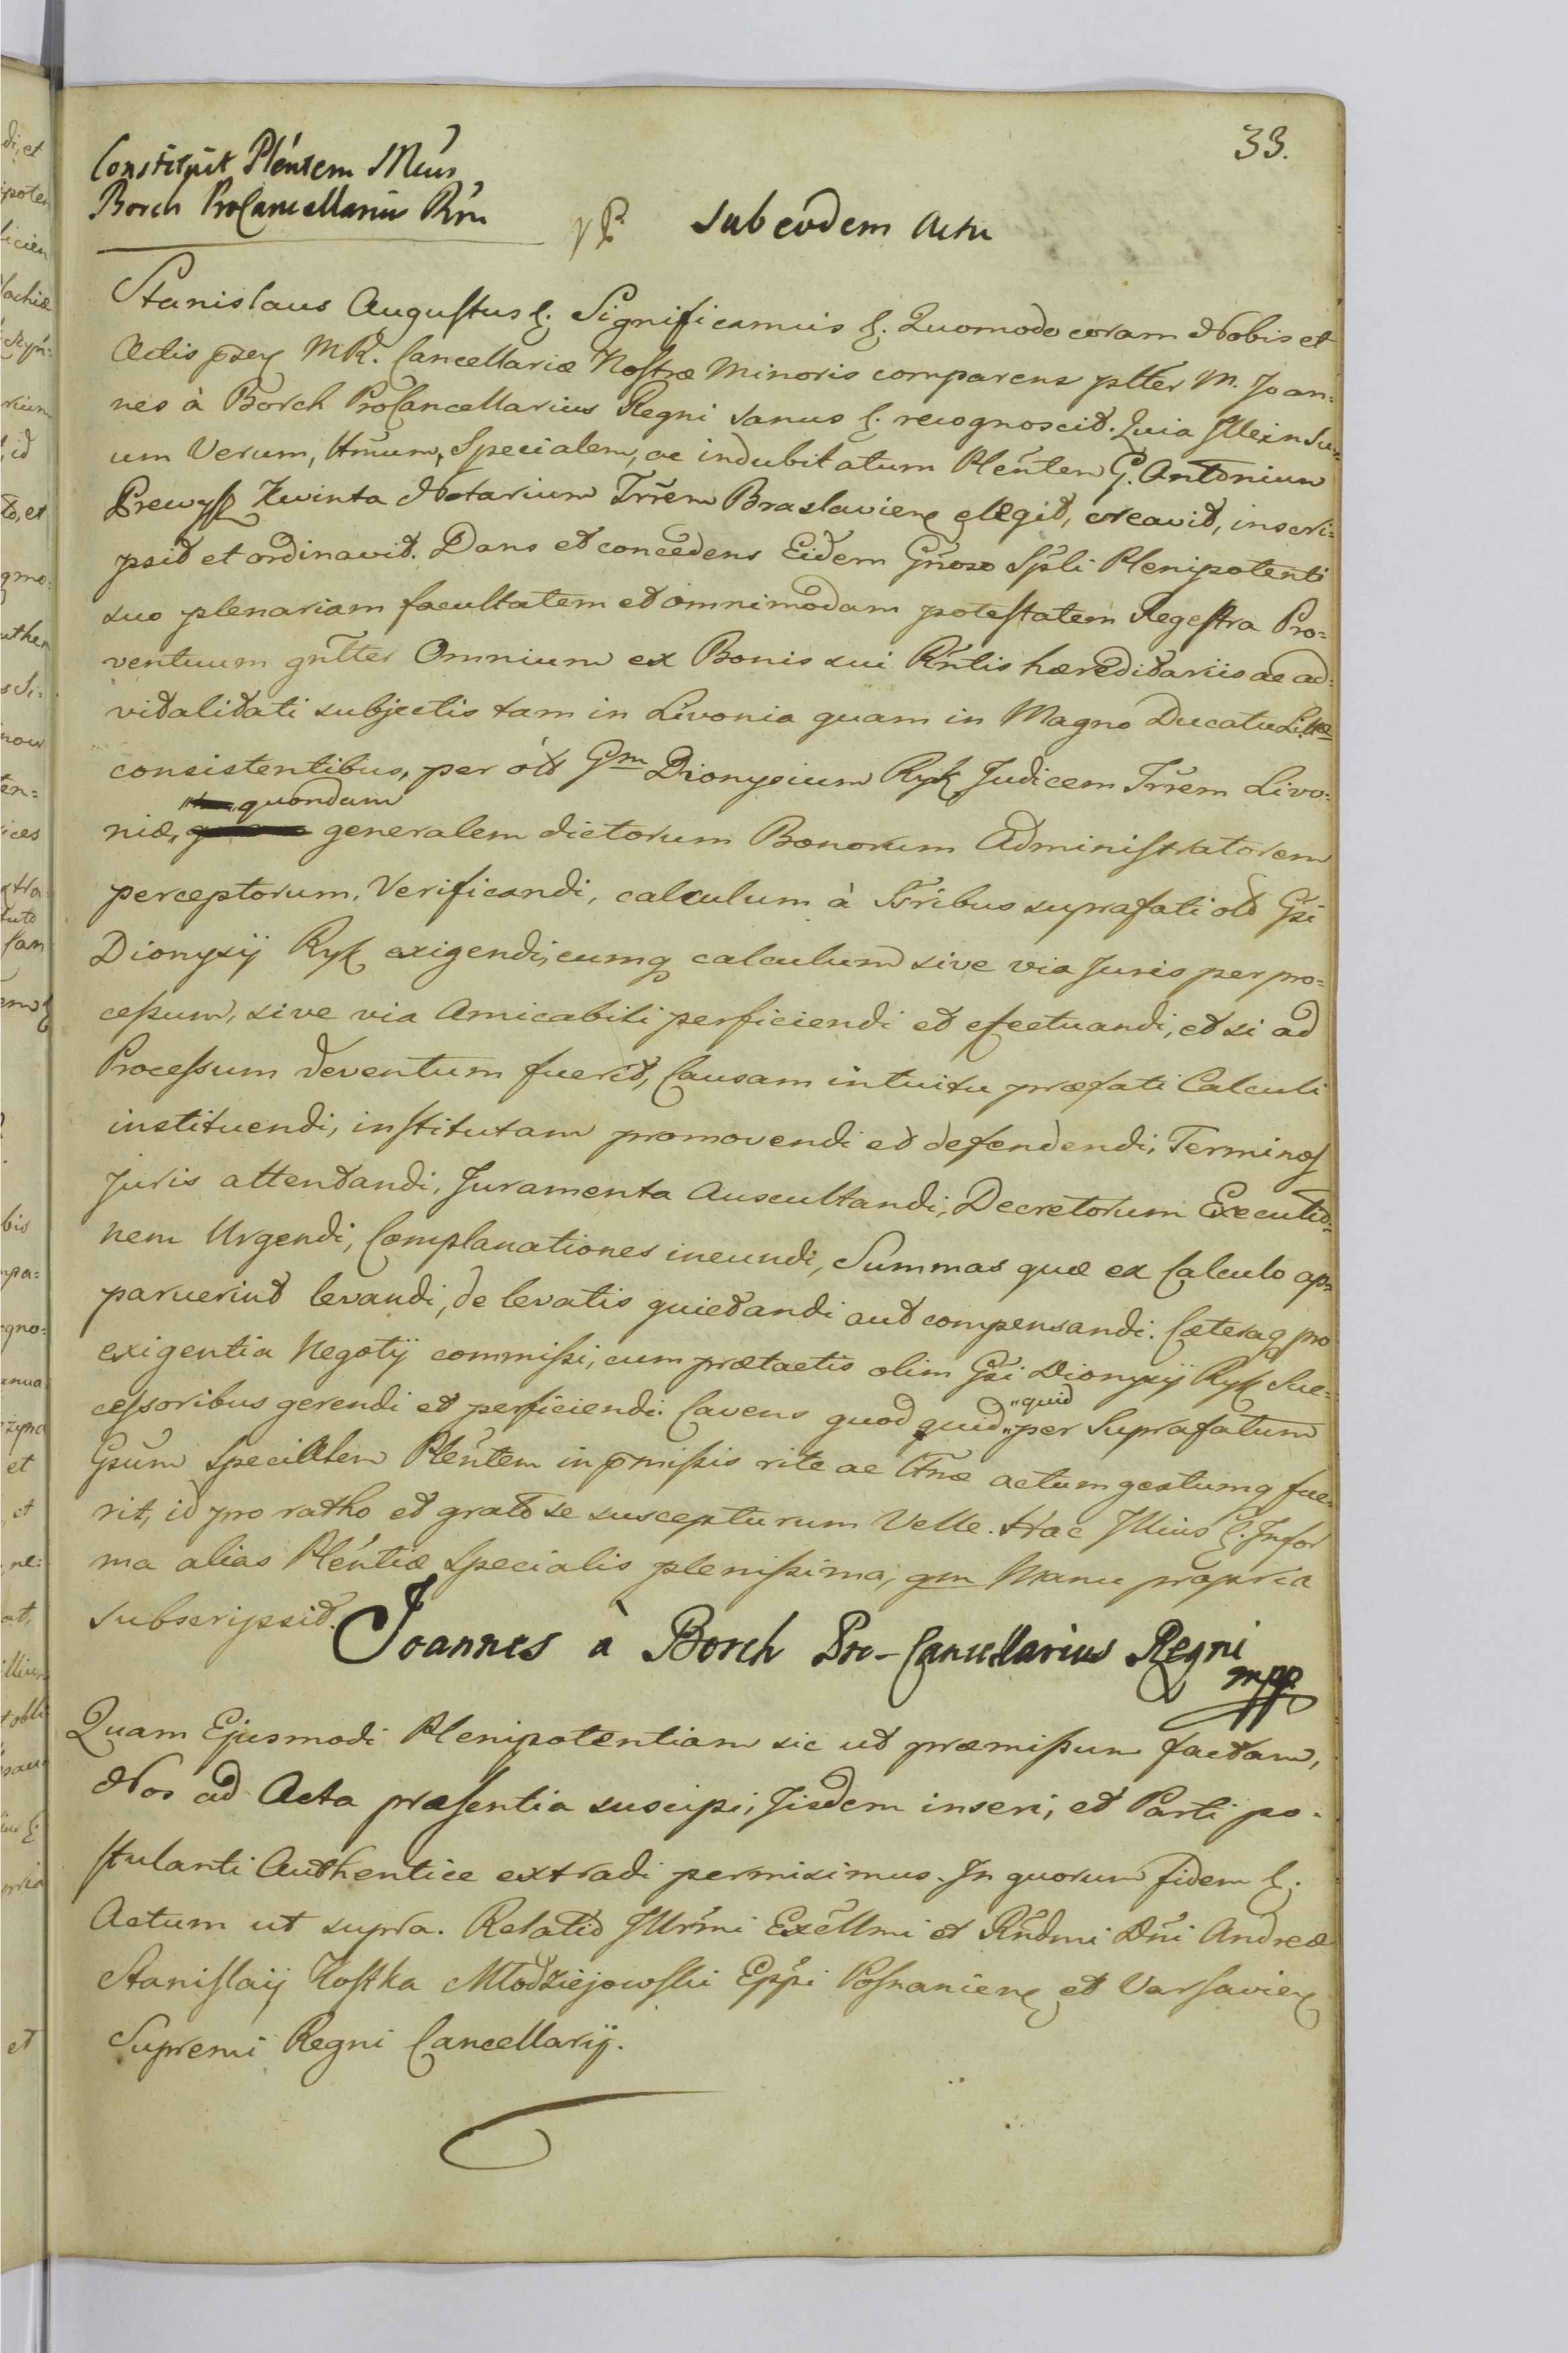 33.
Constituit Plẽntem Mcus
Borch ProCancellarius Rñi
Sub eodem Actu
Stanislaus Augustus &. Significamus &. Quomodo coram Nobis et
Actis MR. Cancellariæ Nostræ Minoris comparens pltter M. Joan=
nes à Borch ProCancellarius Regni sanus &. recognoscit. Quia Ille in su=
um Verum, Ltĩmum, Specialem, ac indubitatum Plẽntem G. Antonium
Prewysz Kwinta Notarium Trr̃em Braslavien elegit, creavit, inscri=
psit et ordinavit. Dans et concedens Eidem Gñoso Spl̃i Plenipotenti
suo plenariam facultatem et omnimodam potestatem Regestra Pro=
ventuum gñlter Omnium ex Bonis sui Rñtis hæreditariis ac ad=
vitalitati subjectis tam in Livonia quam in Magno Ducatu Litt̃æ
consistentibus, per olt Gm Dionysium Ryk Judicem Trr̃em Livo=
niæ, quondam generalem dictorum Bonorum Administratorem
perceptorum, Verificandi, calculum à Sr̃ibus suprafati olt Gsi
Dionysij Ryk exigendi, eumq calculum sive via Juris per pro=
cessum, sive via Amicabili perficiendi et efectuandi, et si ad
Processum deventum fuerit, Causam intuitu præfati Calculi
instituendi, institutam promovendi et defendendi, Terminos
Juris attentandi, Juramenta Auscultandi, Decretorum Executio=
nem Urgendi, Complanationes ineundi, Summas quæ ex Calculo ap=
paruerint levandi, de levatis quietandi aut compensandi. Cæteraq pro
exigentia Negotij commissi, cum prætactis olim Gsi Dionysij Ryk Suc=
cessoribus gerendi et perficiendi. Cavens quod quid "quid per Suprafatum
Gsum Specialem Plẽntem in pmissis rite ac ltmæ actum gestumq fue=
rit, id pro ratho et grato se suscepturum Velle. Hac Illius &. Infor
ma alias Plẽntiæ Specialis plenissima, qm Manu propria
subscripsit.
Joannes à Borch Pro-Cancellarius Regni
mpp
Quam Ejusmodi Plenipotentiam sic ut præmissum factam,
Nos ad Acta præsentia suscipi, Iisdem inseri, et Parti po=
stulanti Authentice extradi permisimus. In quorum fidem &.
Actum ut supra. Relatio Illr̃mi Excẽllmi et Rñdmi Dñi Andreæ
Stanislaij Kostka Młodziejowski Epp̃i Posnanien et Varsavien
Supremi Regni Cancellarij.